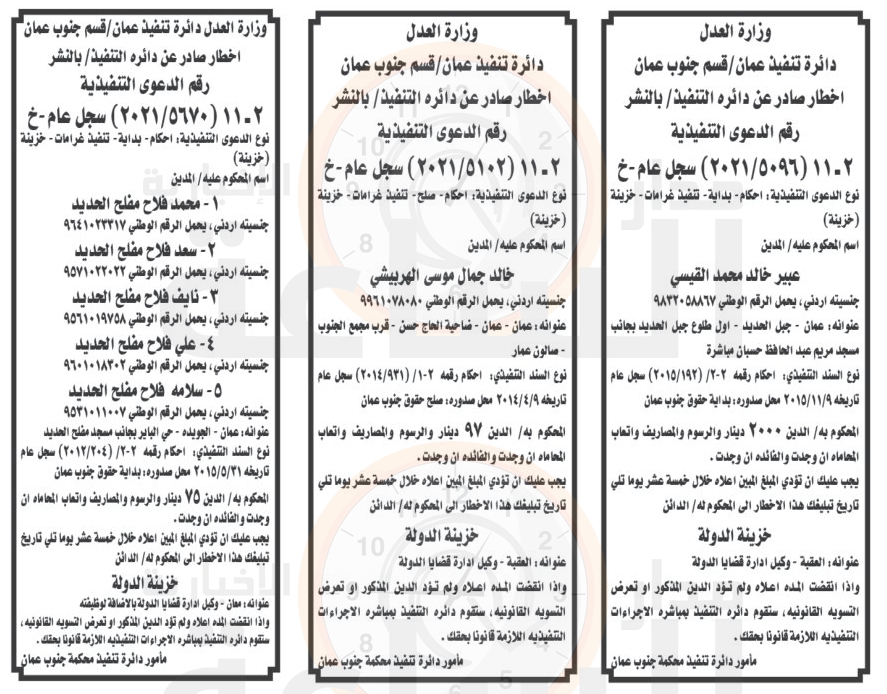 وزارة العدل
دائرة تنفيذ عمان/قسم جنوب عمان
اخطار صادر عن دائره التنفيذ/ بالنشر
رقم الدعوى التنفيذية
٢ـ١١ (٢٠٢١/٥٠٩٦) سجل عام -خ
نوع الدعوى التنفيذية: احكام- بداية- تنفيذ غرامات- خزينة
(خزينة)
اسم المحكوم عليه/ المدين
عبير خالد محمد القيسي
جنسيته اردني، يحمل الرقم الوطني ٩٨٣٢٠٥٨٨٦٧
عنوانه: عمان - جبل الحديد - اول طلوع جبل الحديد بجانب
مسجد مريم عبد الحافظ حسبان مباشرة
نوع السند التنفيذي: احكام رقمه ٢-٢/ (٢٠١٥/١٩٢) سجل عام
تاريخه ٢٠١٥/١١/٩ محل صدوره: بداية حقوق جنوب عمان
المحكوم به/ الدين ٢٠٠٠ دينار والرسوم والمصاريف واتعاب
المحاماه ان وجدت والفائده ان وجدت.
يجب عليك ان تؤدي المبلغ المبين اعلاه خلال خمسة عشر يوما تلي
تاريخ تبليغك هذا الاخطار الى المحكوم له/ الدائن
خزينة الدولة
عنوانه: العقبة - وكيل ادارة قضايا الدولة
واذا انقضت المده اعلاه ولم تؤد الدين المذكور او تعرض
التسويه القانونيه، ستقوم دائره التنفيذ بمباشره الاجراءات
التنفيذيه اللازمة قانونا بحقك .
مأمور دائرة تنفيذ محكمة جنوب عمان
وزارة العدل
دائرة تنفيذ عمان/قسم جنوب عمان
اخطار صادر عن دائره التنفيذ/ بالنشر
رقم الدعوى التنفيذية
٢ـ١١ (٢٠٢١/٥١٠٢) سجل عام -خ
نوع الدعوى التنفيذية: احكام- صلح- تنفيذ غرامات- خزينة
(خزينة)
اسم المحكوم عليه/ المدين
خالد جمال موسى الهربيشي
جنسيته اردني، يحمل الرقم الوطني ٩٩٦١٠٧٨٠٨٠
عنوانه: عمان - عمان - ضاحية الحاج حسن - قرب مجمع الجنوب
- صالون عمار
نوع السند التنفيذي: احكام رقمه ٢-١/ (٢٠١٤/٩٣١) سجل عام
تاريخه ٢٠١٤/٤/٩ محل صدوره: صلح حقوق جنوب عمان
المحكوم به/ الدين ٩٧ دينار والرسوم والمصاريف واتعاب
المحاماه ان وجدت والفائده ان وجدت.
يجب عليك ان تؤدي المبلغ المبين اعلاه خلال خمسة عشر يوما تلي
تاريخ تبليغك هذا الاخطار الى المحكوم له/ الدائن
خزينة الدولة
عنوانه: العقبة - وكيل ادارة قضايا الدولة
واذا انقضت المده اعلاه ولم تؤد الدين المذكور او تعرض
التسويه القانونيه، ستقوم دائره التنفيذ بمباشره الاجراءات
التنفيذيه اللازمة قانونا بحقك .
مأمور دائرة تنفيذ محكمة جنوب عمان
وزارة العدل دائرة تنفيذ عمان/قسم جنوب عمان
اخطار صادر عن دائره التنفيذ/ بالنشر
رقم الدعوى التنفيذية
٢ـ١١ (٢٠٢١/٥٦٧٠) سجل عام -خ
نوع الدعوى التنفيذية: احكام- بداية- تنفيذ غرامات- خزينة
(خزينة)
اسم المحكوم عليه/ المدين
١- محمد فلاح مفلح الحديد
جنسيته اردني، يحمل الرقم الوطني ٩٦٤١٠٢٣٣١٧
٢- سعد فلاح مفلح الحديد
جنسيته اردني، يحمل الرقم الوطني ٩٥٧١٠٢٢٠٢٢
٣- نايف فلاح مفلح الحديد
جنسيته اردني، يحمل الرقم الوطني ٩٥٦١٠١٩٧٥٨
٤- علي فلاح مفلح الحديد
جنسيته اردني، يحمل الرقم الوطني ٩٦٠١٠١٨٣٠٢
٥- سلامه فلاح مفلح الحديد
جنسيته اردني، يحمل الرقم الوطني ٩٥٣١٠١١٠٠٧
عنوانه: عمان - الجويده - حي الباير بجانب مسجد مفلح الحديد
نوع السند التنفيذي: احكام رقمه ٢-٢/ (٢٠١٢/٢٠٤) سجل عام
تاريخه ٢٠١٥/٥/٣١ محل صدوره: بداية حقوق جنوب عمان
المحكوم به/ الدين ٧٥ دينار والرسوم والمصاريف واتعاب المحاماه ان
وجدت والفائده ان وجدت.
يجب عليك ان تؤدي المبلغ المبين اعلاه خلال خمسة عشر يوما تلي تاريخ
تبليغك هذا الاخطار الى المحكوم له/ الدائن
خزينة الدولة
عنوانه: معان - وكيل ادارة قضايا الدولة بالاضافة لوظيفته
واذا انقضت المده اعلاه ولم تؤد الدين المذكور او تعرض التسويه القانونيه،
ستقوم دائره التنفيذ بمباشره الاجراءات التنفيذيه اللازمة قانونا بحقك .
مأمور دائرة تنفيذ محكمة جنوب عمان